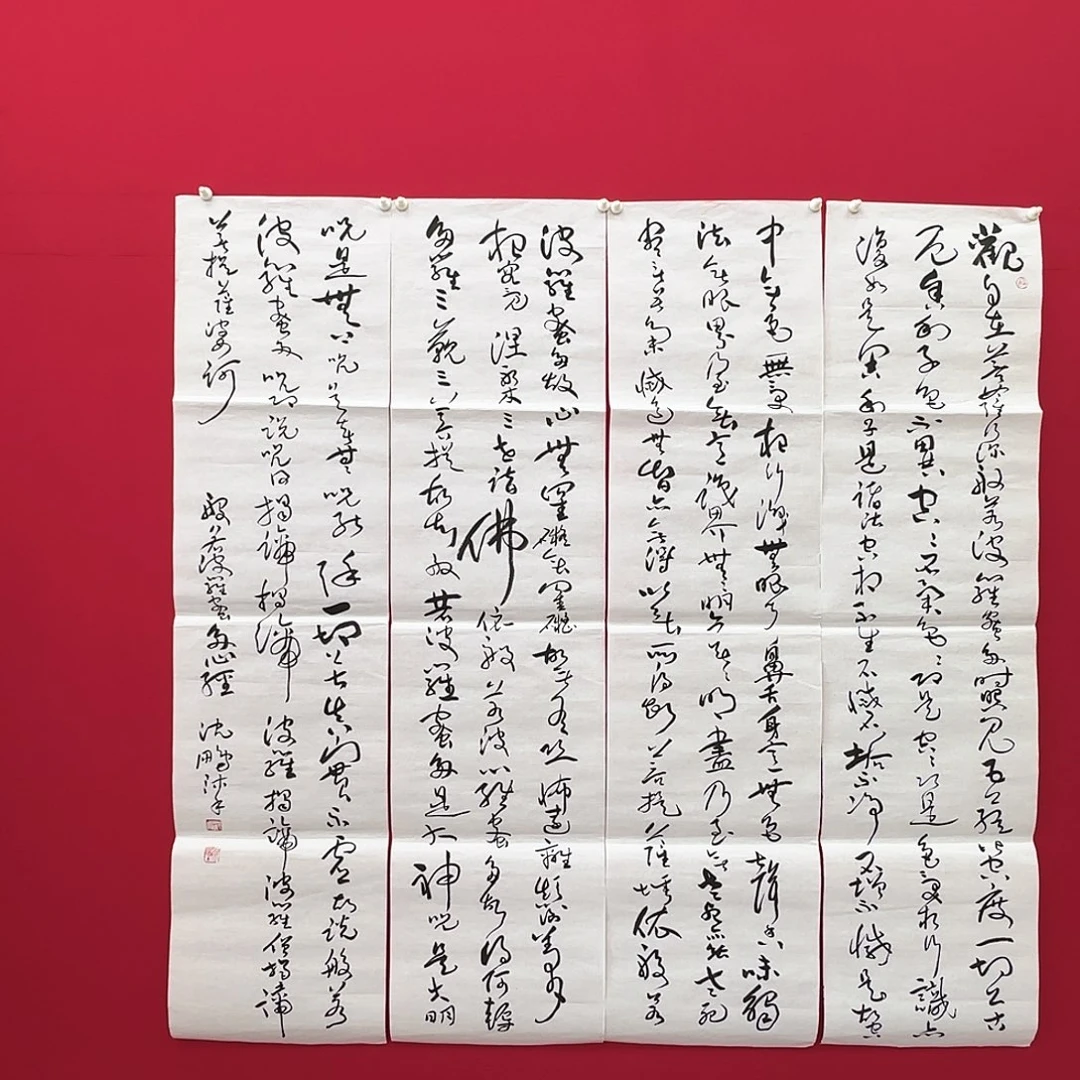 觀自在菩薩行深般若波羅蜜多時照見五蘊皆空度一切苦
厄舍利子色不異空空不異色色即是空空即是色受想行識亦
復如是舍利子是諸法空相不生不滅不垢不淨不增不減是故空
中無色無受想行識無眼耳鼻舌身意無色聲香味觸
法無眼界乃至無意識界無無明亦無無明盡乃至無老死亦無老死
盡無苦集滅道無智亦無得以無所得故菩提薩埵依般若
波羅蜜多故心無罣礙無罣礙故無有恐怖遠離顛倒夢
想究竟涅槃三世諸佛依般若波羅蜜多故得阿耨
多羅三藐三菩提故知般若波羅蜜多是大神咒是大明
咒是無上咒是無等等咒能除一切苦真實不虛故說般若
波羅蜜多咒即說咒曰揭諦揭諦波羅揭諦波羅僧揭諦
菩提薩婆訶
般若波羅蜜多心經
沈鵬沐手